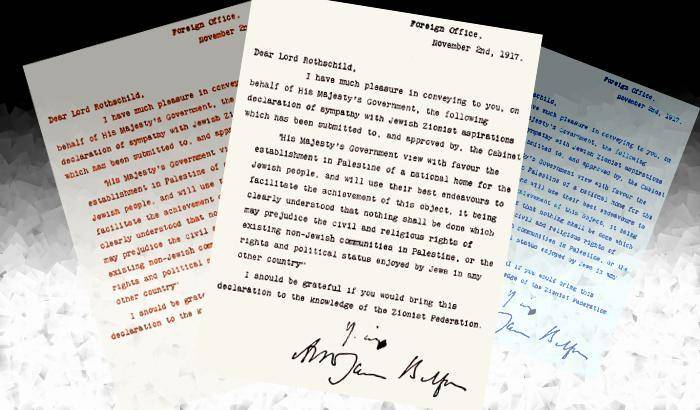 Foreign Office,
November 2nd, 1917.
Dear Lord Rothschild,
I have much pleasure in conveying to you, on
behalf of His Majesty's Government, the following
declaration of sympathy with Jewish Zionist aspirations
which has been submitted to, and approved by, the Cabinet
"His Majesty's Government view with favour the
establishment in Palestine of a national home for the
Jewish people, and will use their best endeavours to
facilitate the achievement of this object, it being
clearly understood that nothing shall be done which
may prejudice the civil and religious rights of
existing non-Jewish communities in Palestine, or the
rights and political status enjoyed by Jews in any
other country"
I should be grateful if you would bring this
declaration to the knowledge of the Zionist Federation.
Foreign Office,
November 2n
Dear Lord Rothschild,
I have much pleasure in convey
behalf of His Majesty's Government, the
declaration of sympathy with Jewish Zi
which has been submitted to, and appr
"His Majesty's Government v
establishment in Palestine of
Jewish people, and will use
facilitate the achievement
clearly understood that no
may prejudice the civil
existing non-Jewish com
rights and political s
other country"
I should be grat
declaration to the k
Foreign Office,
November 2nd, 1917.
schild,
ave much pleasure in conveying to you, on
Majesty's Government, the following
ympathy with Jewish Zionist aspirations
mitted to, and approved by, the Cabinet
Government view with favour the
Palestine of a national home for the
will use their best endeavours to
ievement of this object, it being
that nothing shall be done which
civil and religious rights of
communities in Palestine, or the
status enjoyed by Jews in any
if you would bring this
ledge of the Zionist Federation